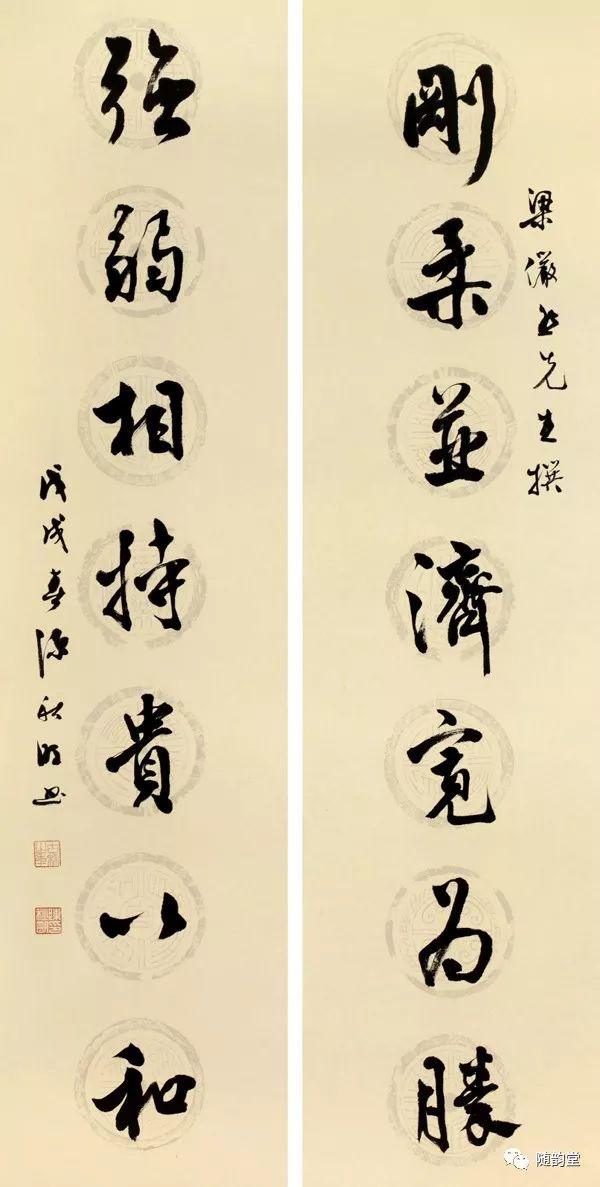 梁儼然先生撰
剛柔並濟寬為勝
強弱相持貴以和
戊戌春陳秋明書
随韵堂